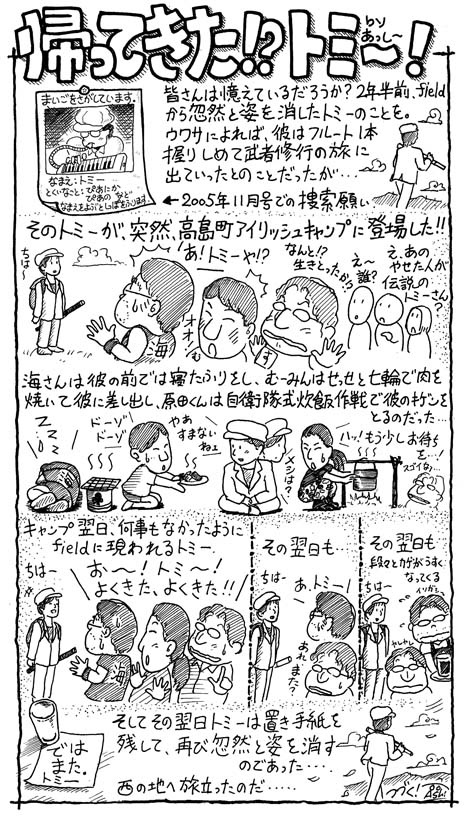 帰ってきた!!? トミ〜!
by
あっし〜
まいごをさがしています。
なまえ:トミー
とくいなこと:ぴあにか
ぴあの など
なまえをよぶとしっぽをふります。
皆さんは憶えているだろうか?2年半前、field
から忽然と姿を消したトミーのことを。
ウワサによれば、彼はフルート1本
握りしめて武者修行の旅に
出ていったとのことだったが…
←2005年11月号での捜索願い
そのトミーが、突然、高島町アイリッシュキャンプに登場した!!
ちは〜
あ!
トミーや!?
なんと!?
生きとったか!?
え〜
誰?
え、あの
やせた人が
伝説の
トミーさん
?
オオ!
海
む
す
海さんは彼の前では寝たふりをし、むーみんはせっせと七輪で肉を
焼いて彼に差し出し、原田くんは自衛隊式炊飯作戦で彼のキゲンを
とるのだった…
zzz
ドーゾ
ドーゾ
やあ
すまない
ねェ
メシは?
ハッ!もう少しお待ち
を…!
スゴイな…
キャンプ翌日、何事もなかったように
fieldに現われるトミー
ちはー
お〜!トミ〜!
よくきた、よくきた!!
海
その翌日も…
ちはー
あ、トミー!
あれ、まだ?
その翌日も
段々とカゲがうすく
なってくる
ちはー
イソガシ
そしてその翌日トミーは置き手紙を
残して、再び忽然と姿を消す
のであった…
西の地へ旅立ったのだ……
では
また。
トミー
つづく!